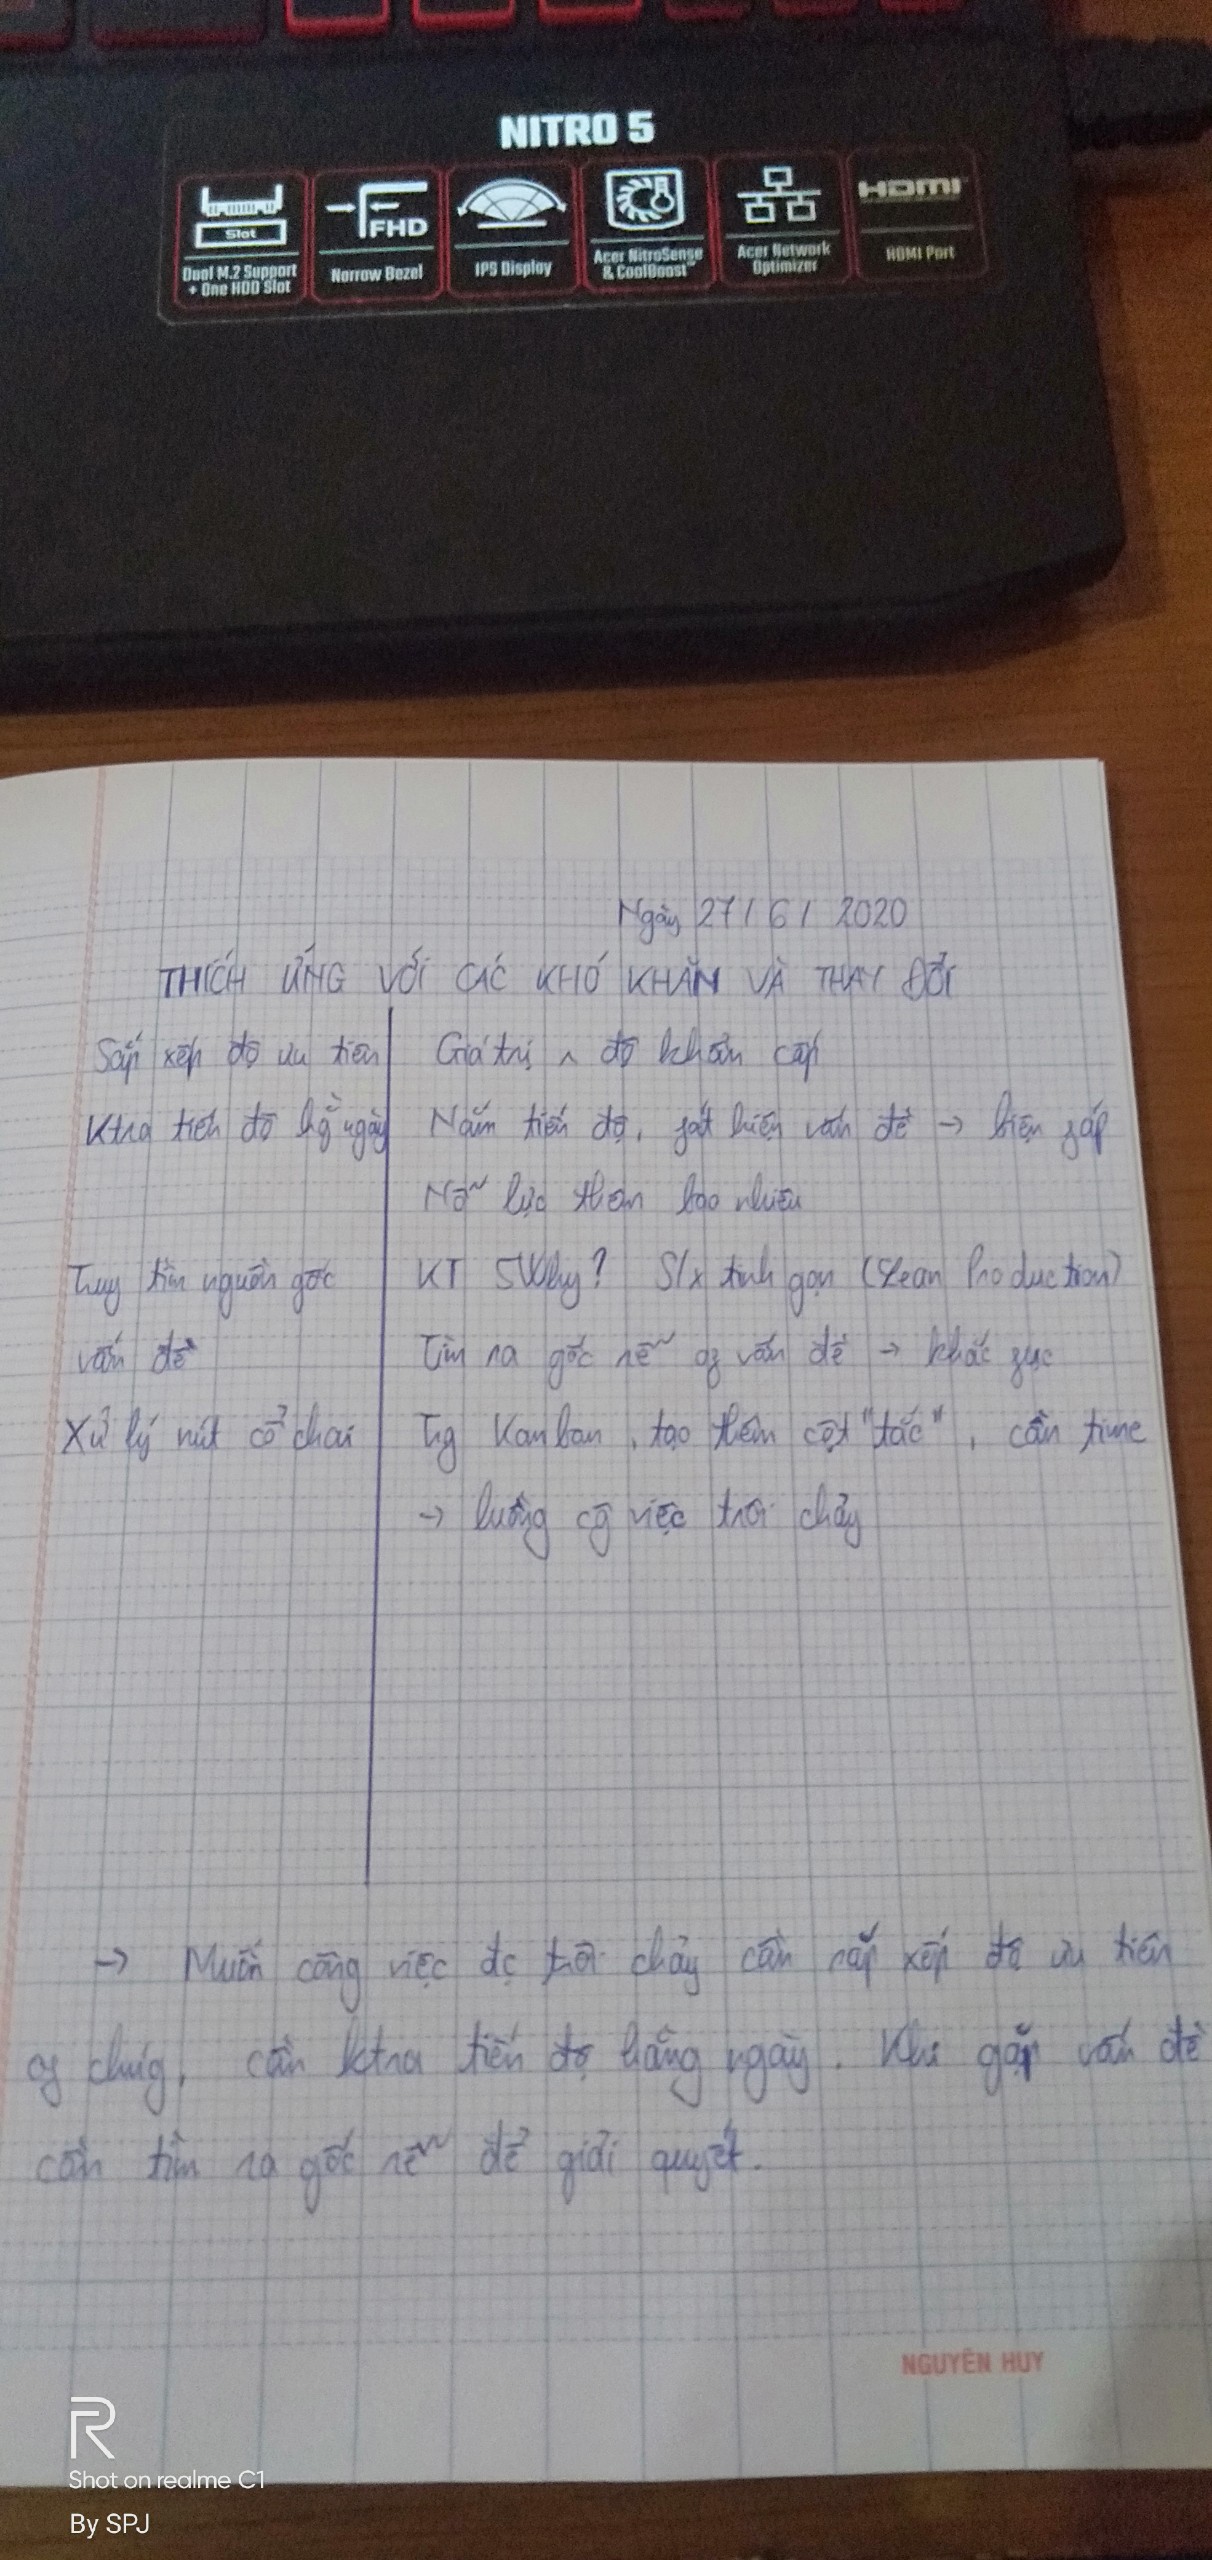 NITRO 5
Slot
FHD
HDMI
Dual M.2 Support
+ One HDD Slot
Narrow Bezel
IPS Display
Acer NitroSense
& CoolBoost™
Acer Network
Optimizer
HDMI Port
Ngày 27/6/2020
THÍCH ỨNG VỚI CÁC KHÓ KHĂN VÀ THAY ĐỔI
Sắp xếp độ ưu tiên Giá trị ^ độ khẩn cấp
Ktra tiến độ hg ngày Nắm tiến độ, fát hiện vấn đề → biện fáp
Nỗ lực thêm bao nhiêu
Truy tìm nguồn gốc KT 5Why? S/x tinh gọn (Slean Production)
vấn đề Tìm ra gốc rễ of vấn đề → khắc fục
Xử lý nút cổ chai Tg Kanban, tạo thêm cột "tắc", cần time
→ luồng cg việc trôi chảy
→ Muốn công việc đc trôi chảy cần sắp xếp độ ưu tiên
of chúg, cần ktra tiến độ hằng ngày. Khi gặp vấn đề
cần tìm ra gốc rễ để giải quyết.
NGUYÊN HUY
Shot on realme C1
By SPJ